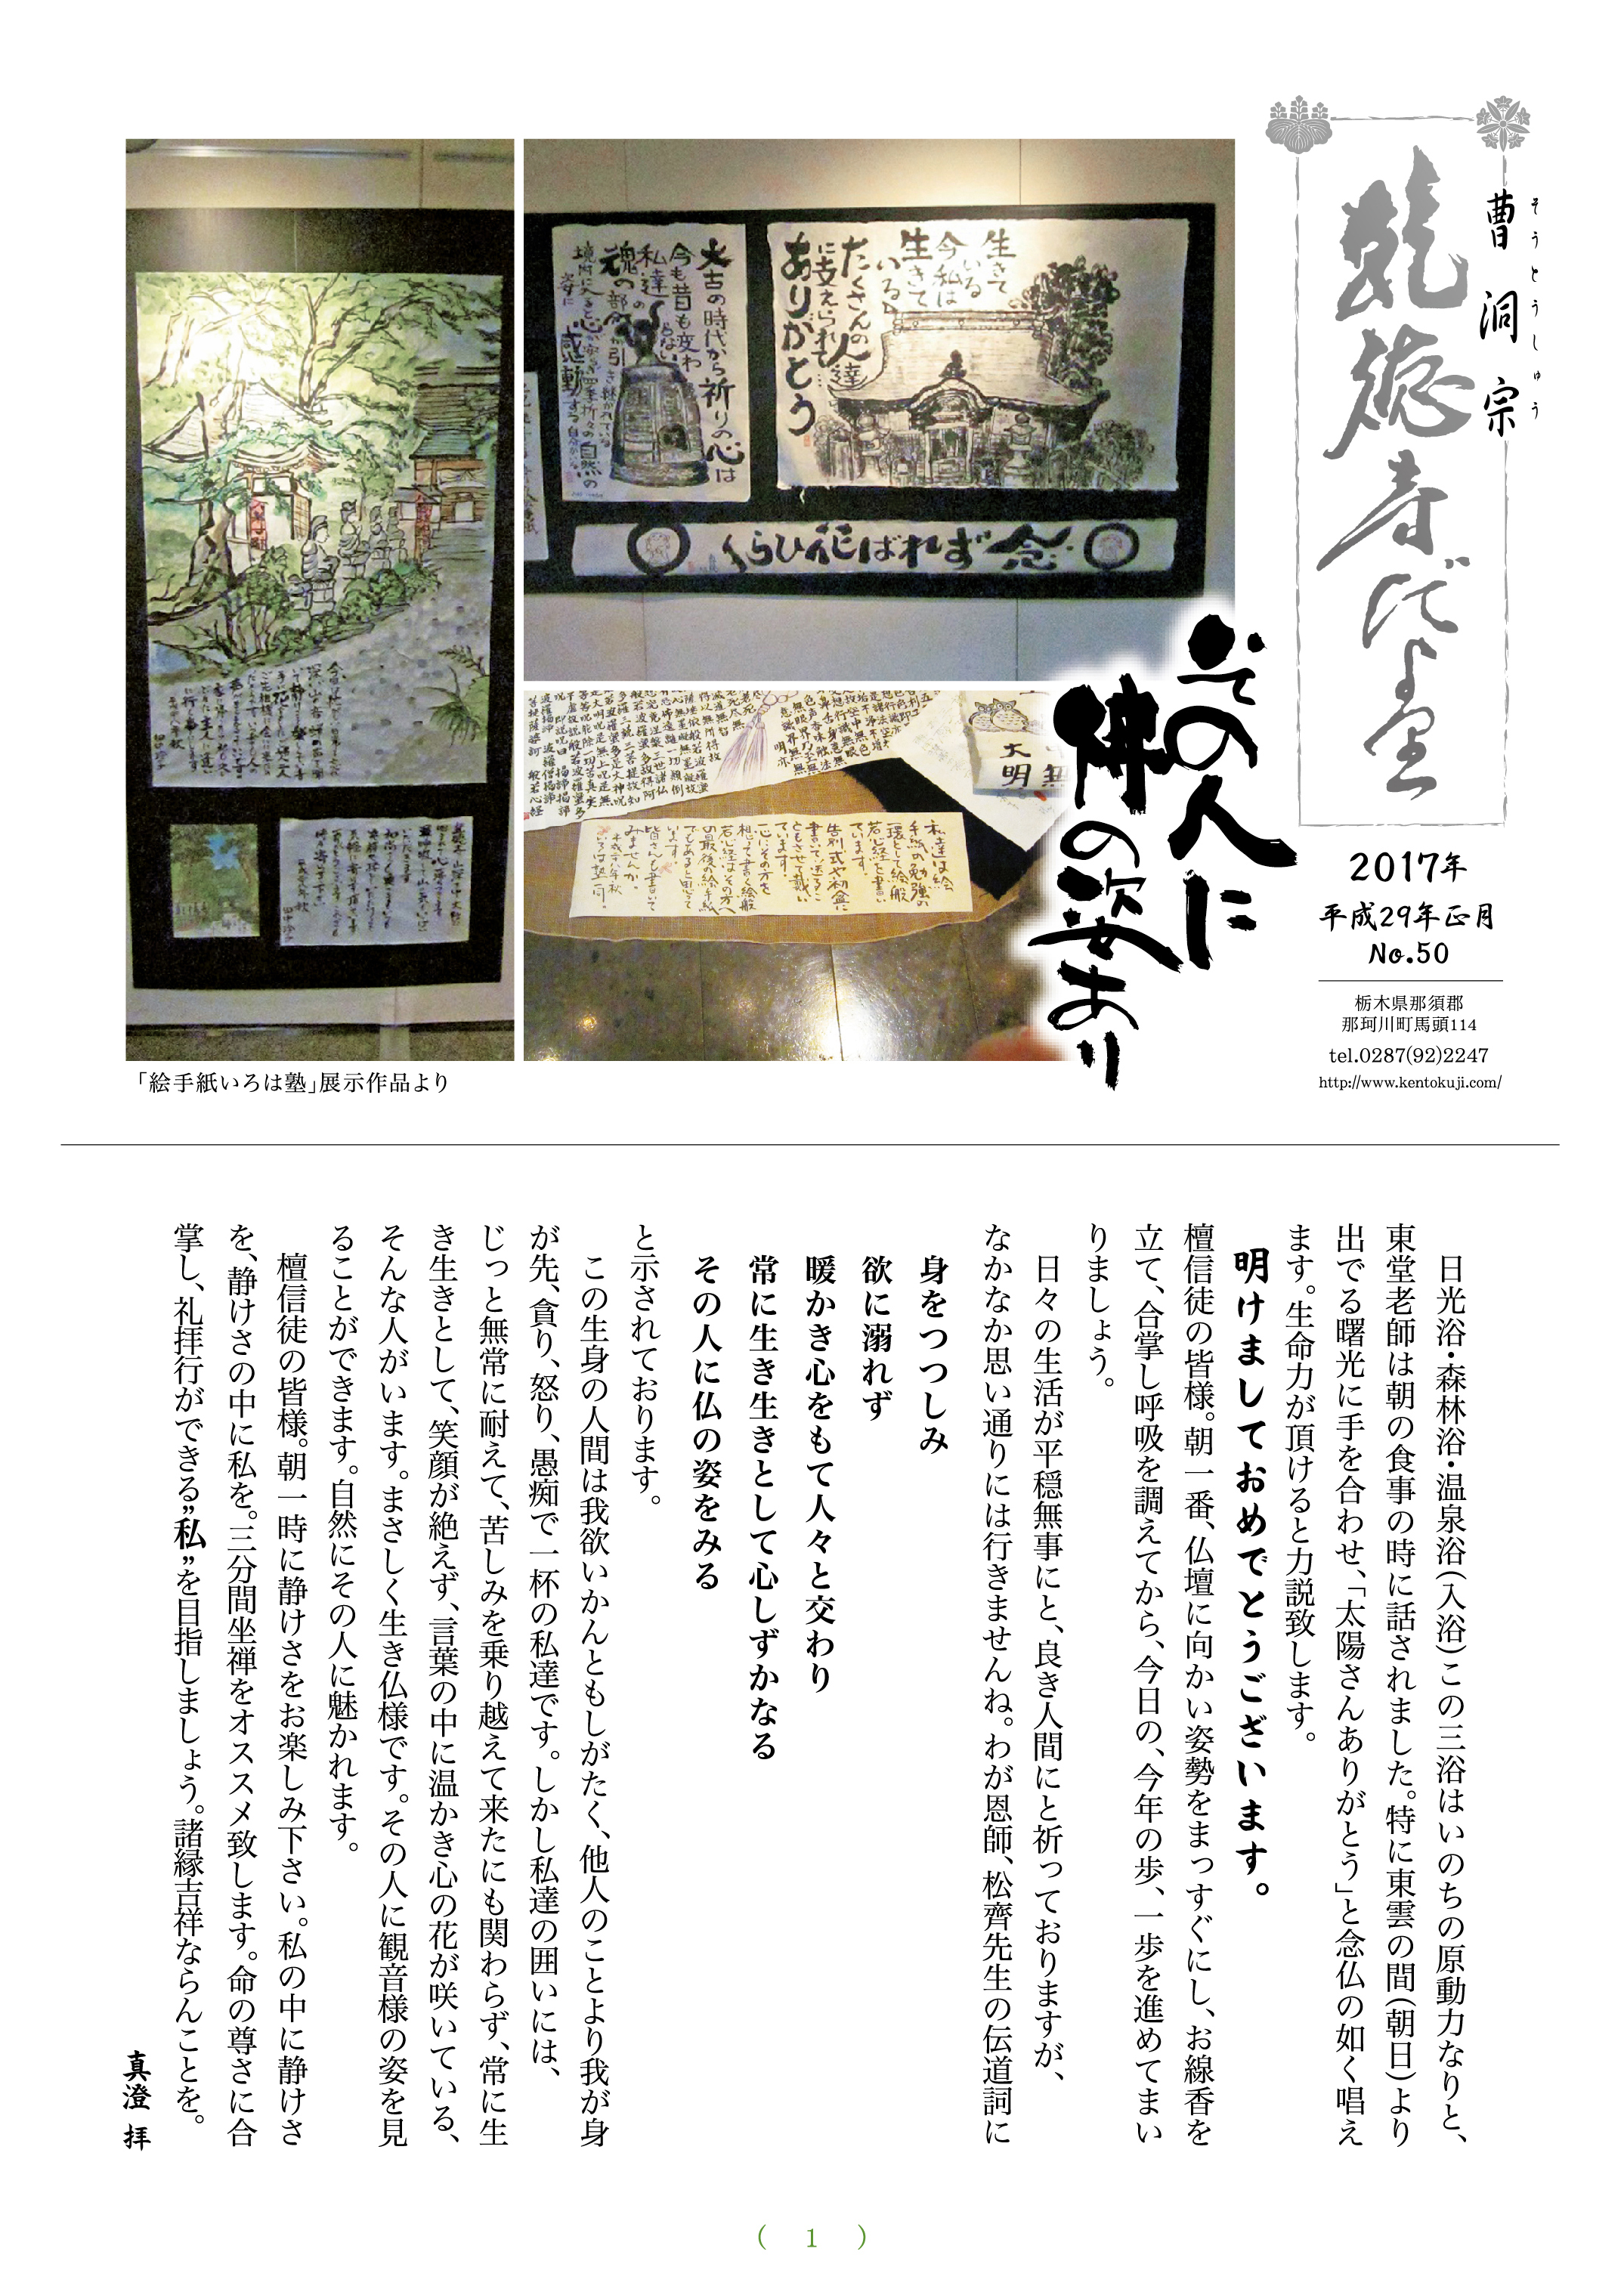 曹洞宗
そうとうしゅう
乾徳寺だより
2017年
平成29年正月
No.50
栃木県那須郡
那珂川町馬頭114
tel.0287(92)2247
http://www.kentokuji.com/
その人に
佛の姿あり
生きて
いる
今私は
生きて
いる
たくさんの人達
に支えられて…
ありがとう
太古の時代から祈りの心は
今も昔も変わ
らない
私達の
魂の部分が引き継がれている
感動する
くらひ花ばれず念
大明
私達は絵
手紙の勉強の
一環として絵般
若心経を書い
ています。
告別式や初盆に
書いて送ること
もさせて頂い
ています。
一心にその方を
想って書く絵般
若心経はその方へ
の最後の絵手紙
でもあると思って
います。
皆さんも書いて
みませんか。
平成二十八年秋
いろは塾一同
「絵手紙いろは塾」展示作品より
日光浴・森林浴・温泉浴(入浴)この三浴はいのちの原動力なりと、
東堂老師は朝の食事の時に話されました。特に東雲の間(朝日)より
出でる曙光に手を合わせ、「太陽さんありがとう」と念仏の如く唱え
ます。生命力が頂けると力説致します。
明けましておめでとうございます。
檀信徒の皆様。朝一番、仏壇に向かい姿勢をまっすぐにし、お線香を
立て、合掌し呼吸を調えてから、今日の、今年の歩、一歩を進めてまい
りましょう。
日々の生活が平穏無事にと、良き人間にと祈っておりますが、
なかなか思い通りには行きませんね。わが恩師、松齊先生の伝道詞に
身をつつしみ
欲に溺れず
暖かき心をもて人々と交わり
常に生き生きとして心しずかなる
その人に仏の姿をみる
と示されております。
この生身の人間は我欲いかんともしがたく、他人のことより我が身
が先、貪り、怒り、愚痴で一杯の私達です。しかし私達の囲いには、
じっと無常に耐えて、苦しみを乗り越えて来たにも関わらず、常に生
き生きとして、笑顔が絶えず、言葉の中に温かき心の花が咲いている、
そんな人がいます。まさしく生き仏様です。その人に観音様の姿を見
ることができます。自然にその人に魅かれます。
檀信徒の皆様。朝一時に静けさをお楽しみ下さい。私の中に静けさ
を、静けさの中に私を。三分間坐禅をオススメ致します。命の尊さに合
掌し、礼拝行ができる”私”を目指しましょう。諸縁吉祥ならんことを。
真澄 拝
( 1 )